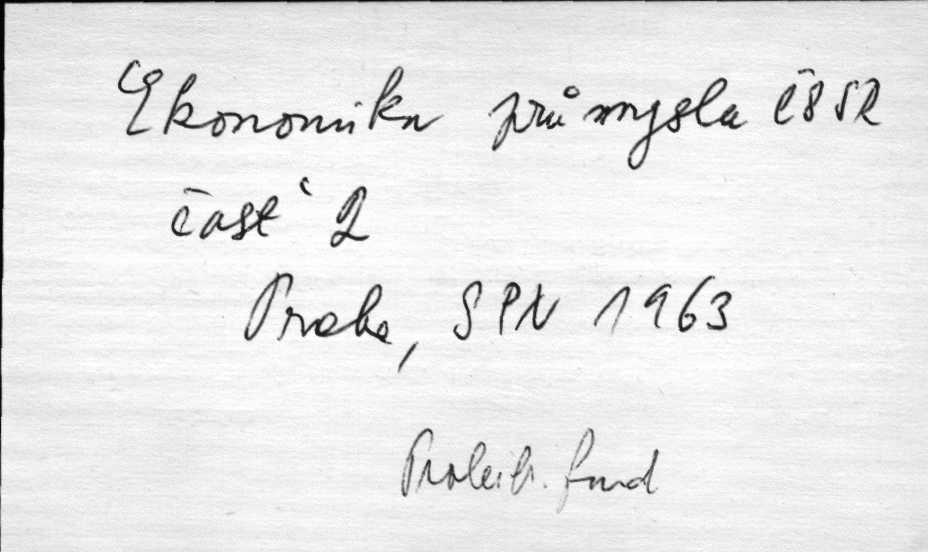 Ekonomika průmyslu ČSSR
část 2
Praha, SPN 1963
Prohib. fond